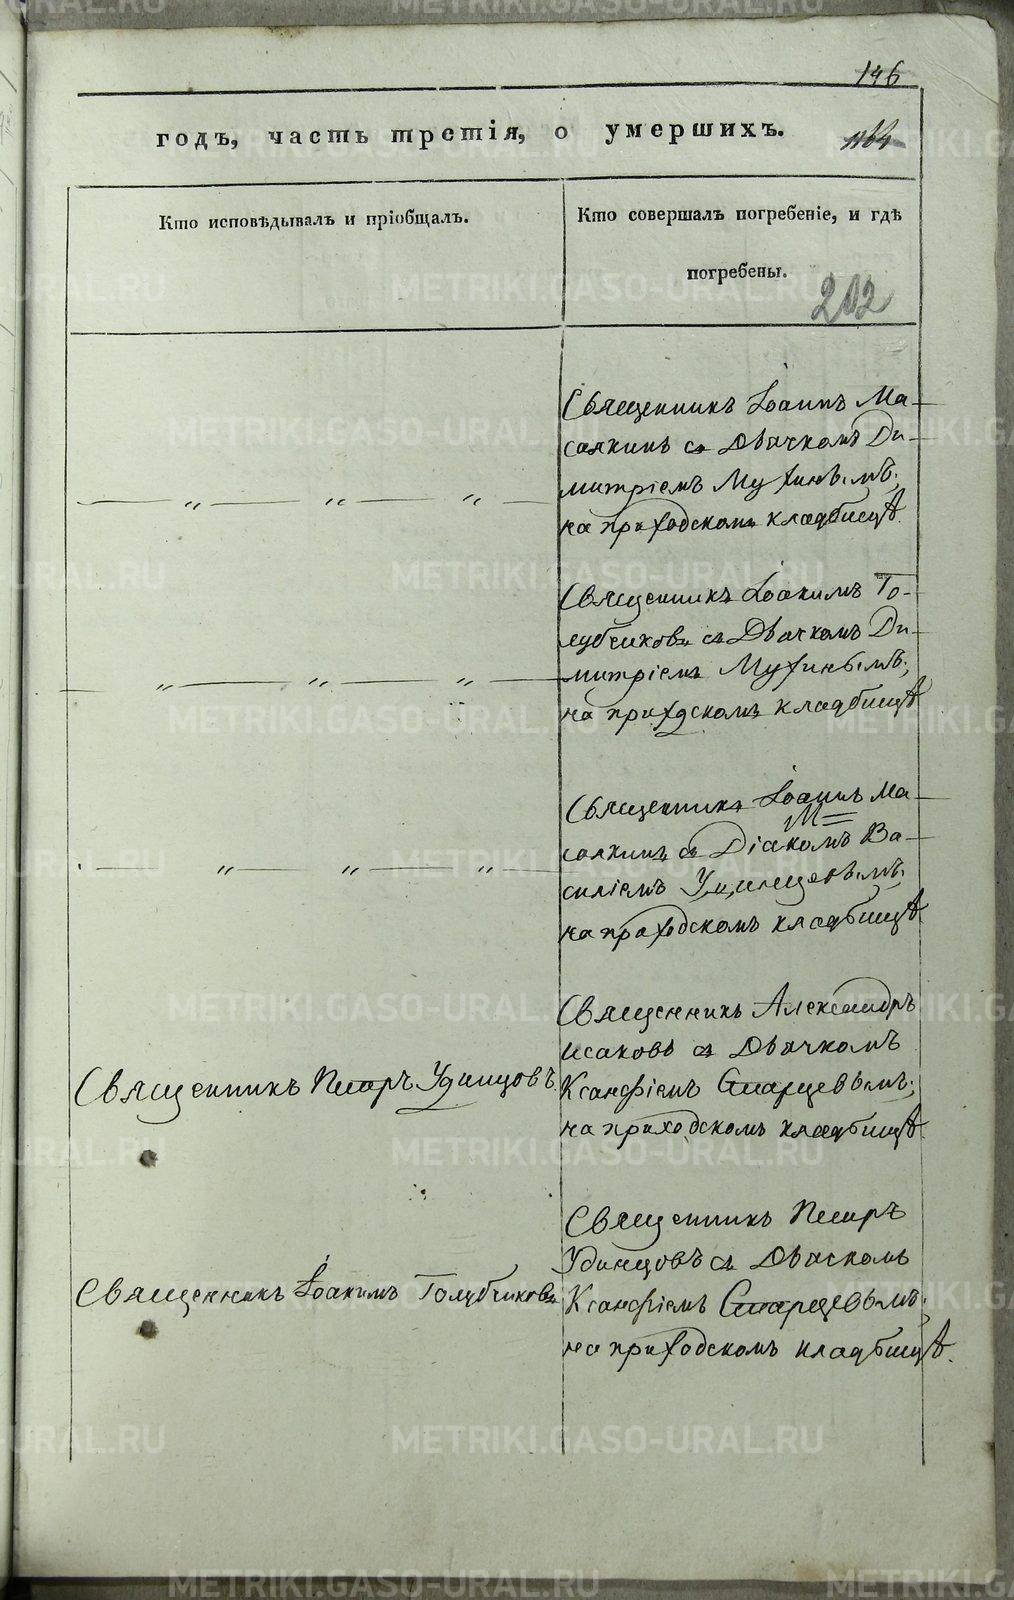 146
годъ, часть третія, о умершихъ.
Кто исповѣдывалъ и пріобщалъ.
Кто совершалъ погребеніе, и гдѣ
погребены.
202
Священникъ Іоаннъ Ма-
сялкинъ съ Дьячкомъ Ди-
митріемъ Мухинымъ;
— „ — „ — „ —
на приходскомъ кладбищѣ.
Священникъ Іоакимъ Го-
лубчиковъ съ Дьячкомъ Ди-
митріемъ Мухинымъ;
— „ — „ — „ —
на прихдскомъ кладбищѣ
Священникъ Іоаннъ Ма-
сялкинъ съ Діакомъ Ва-
силіемъ Удинцевымъ;
— „ — „ — „ —
на приходскомъ кладбищѣ
Священникъ Александръ
Исаковъ съ Дьячкомъ
Священникъ Петръ Удинцовъ.
Ксанфіемъ Старцевымъ;
на приходскомъ кладбищѣ.
Священникъ Петръ
Удинцовъ съ Дьячкомъ
Священникъ Іоакимъ Голубчиковъ
Ксанфіемъ Старцевымъ;
на приходскомъ кладбищѣ.
METRIKI.GASO-URAL.RU